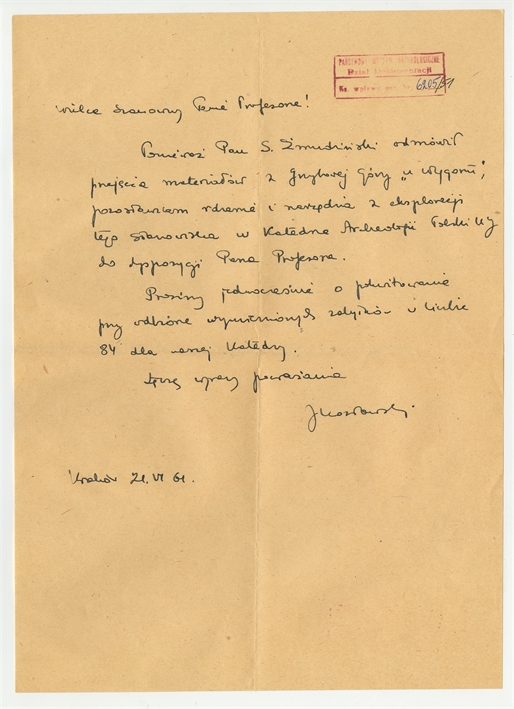 PAŃSTWOWE MUZEUM ARCHEOLOGICZNE
Dział Dokumentacji
Ks. wpływu 6205/51
Wielce Szanowny Panie Profesorze!
Ponieważ Pan S. Żmudziński odmówił
przejęcia materiałów z Grzybowej Góry „u Wygonu”,
pozostawiam rdzenie i narzędzia z eksploracji
tego stanowiska w Katedrze Archeologii Polski UJ
do dyspozycji Pana Profesora.
Prosimy jednocześnie o pokwitowanie
przy odbiorze wymienionych zabytków w liczbie
84 dla naszej Katedry.
Łączę wyrazy poważania
JKozłowski
Kraków 21.VI 61.